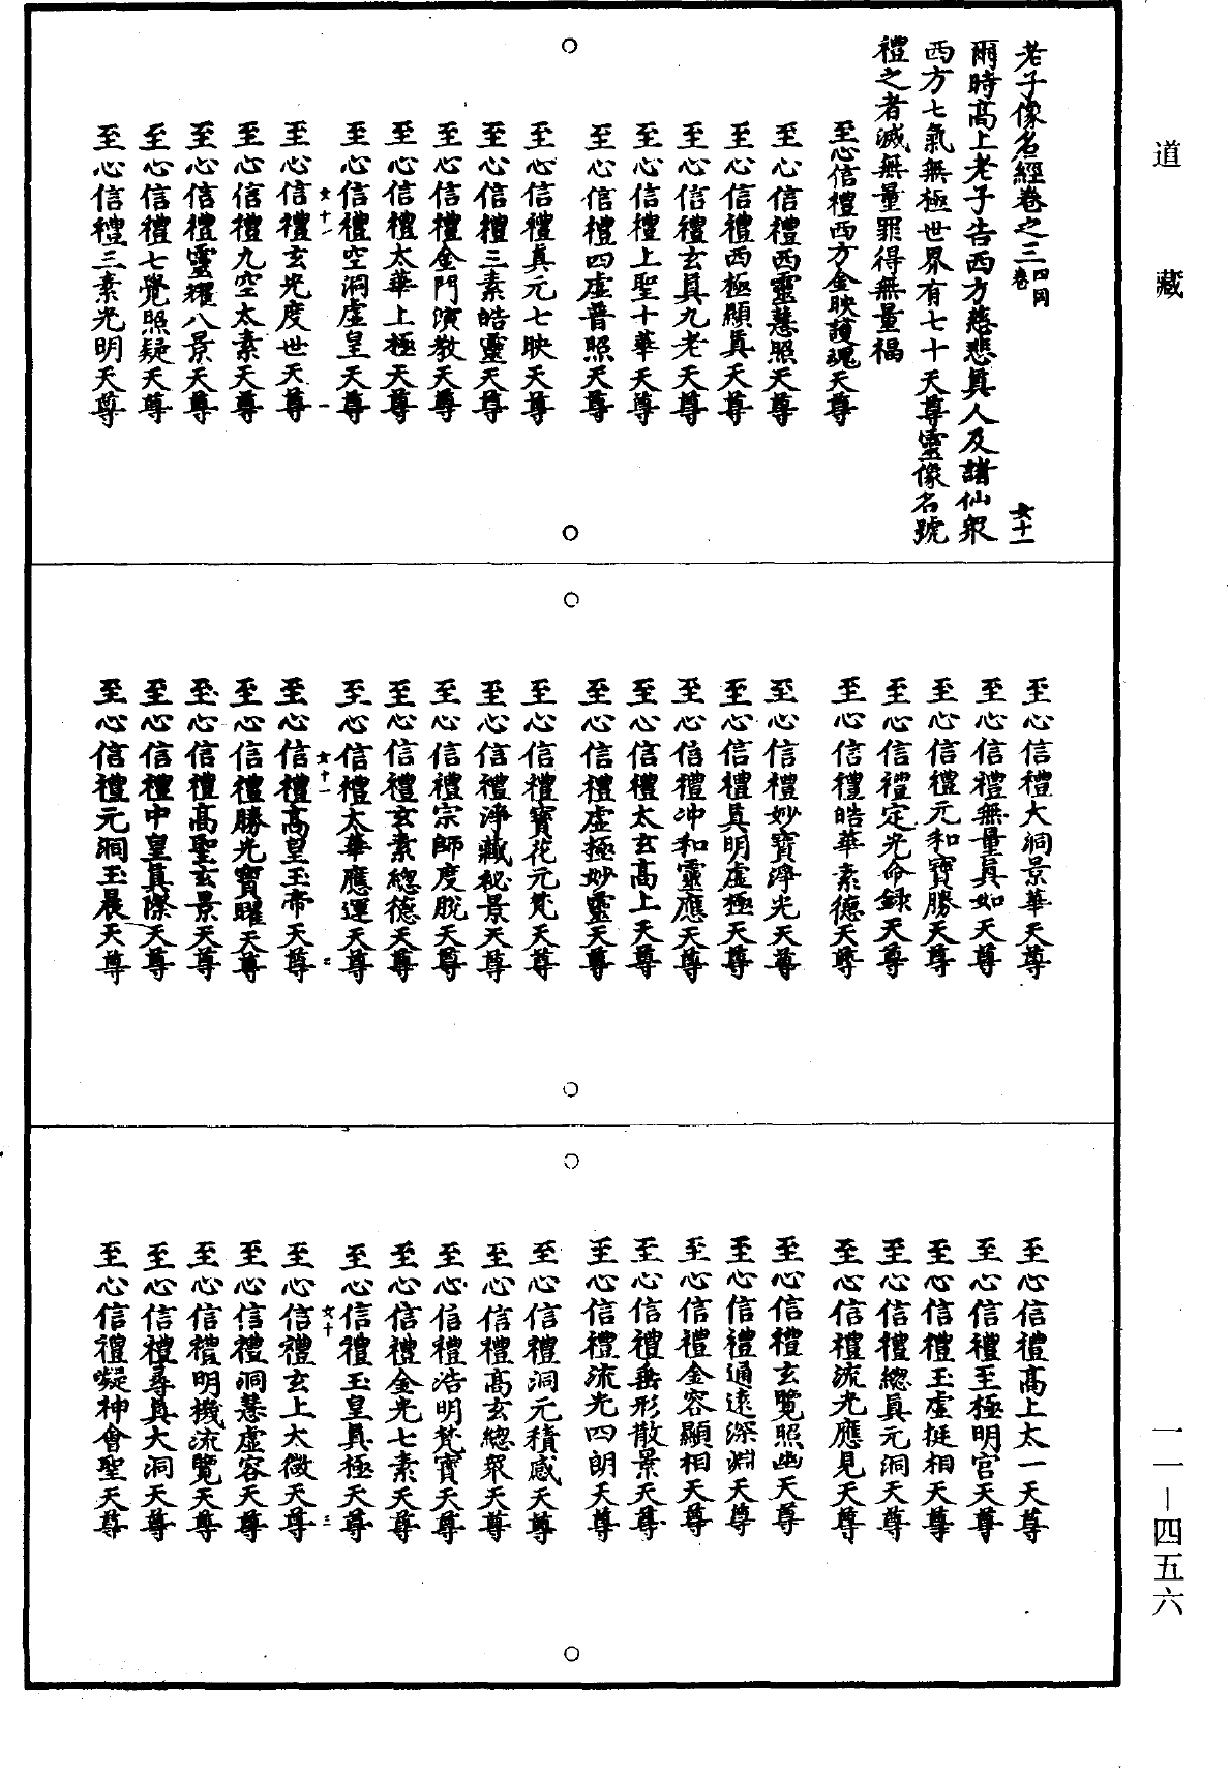 道藏
老子像名經卷之三 四同卷 女十一
爾時高上老子告西方慈悲真人及諸仙眾
西方七氣無極世界有七十天尊靈像名號
禮之者滅無量罪得無量福
至心信禮西方金映護魂天尊
至心信禮西靈慧照天尊
至心信禮西極顯真天尊
至心信禮玄真九老天尊
至心信禮上聖十華天尊
至心信禮四虛普照天尊
至心信禮真元七映天尊
至心信禮三素皓靈天尊
至心信禮金門演教天尊
至心信禮太華上極天尊
至心信禮空洞虛皇天尊
女十一 一
至心信禮玄光度世天尊
至心信禮九空太素天尊
至心信禮靈耀八景天尊
至心信禮七覺照疑天尊
至心信禮三素光明天尊
至心信禮大洞景華天尊
至心信禮無量真如天尊
至心信禮元和寶勝天尊
至心信禮定光命錄天尊
至心信禮皓華素德天尊
至心信禮妙寶淨光天尊
至心信禮真明虛極天尊
至心信禮冲和靈應天尊
至心信禮太玄高上天尊
至心信禮虛極妙靈天尊
至心信禮寶花元梵天尊
至心信禮淨藏祕景天尊
至心信禮宗師度脫天尊
至心信禮玄素總德天尊
至心信禮太華應運天尊
女十一 二
至心信禮高皇玉帝天尊
至心信禮勝光寶曜天尊
至心信禮高聖玄景天尊
至心信禮中皇真際天尊
至心信禮元洞玉晨天尊
至心信禮高上太一天尊
至心信禮至極明宮天尊
至心信禮玉虛挺相天尊
至心信禮總真元洞天尊
至心信禮流光應見天尊
至心信禮玄覽照幽天尊
至心信禮通遠深淵天尊
至心信禮金容顯相天尊
至心信禮垂形散景天尊
至心信禮流光四朗天尊
至心信禮洞元積感天尊
至心信禮高玄總眾天尊
至心信禮浩明梵寶天尊
至心信禮金光七素天尊
至心信禮玉皇真極天尊
女十 三
至心信禮玄上太微天尊
至心信禮洞慧虛容天尊
至心信禮明機流覽天尊
至心信禮尋真大洞天尊
至心信禮凝神會聖天尊
一一—四五六